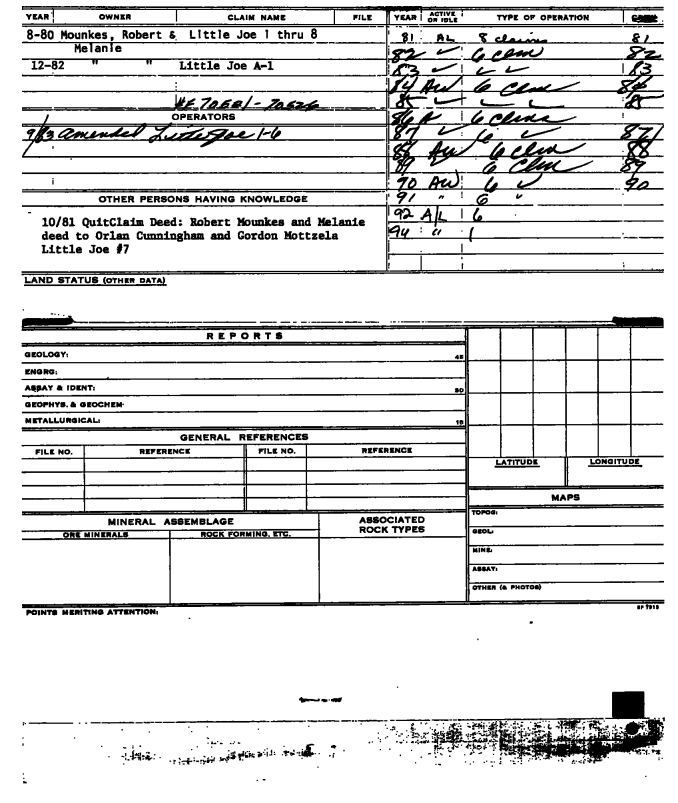 YEAR OWNER CLAIM NAME FILE YEAR ACTIVE OR IDLE TYPE OF OPERATION
8-80 Mounkes, Robert & Little Joe 1 thru 8
Melanie
12-82 " " Little Joe A-1
OPERATORS
9/83 amended Little Joe 1-6
81 AL 8 claims 81
82 ✓ 6 clm 82
83 ✓ ✓ ✓ 83
84 AW 6 Clms 84
85 ✓ ✓ ✓ 85
86 A 6 Clms
87 ✓ 6 ✓ 87
88 AW 6 clm 88
89 ✓ 6 Clm 89
90 AW 6 ✓ 90
91 " 6 "
92 A/L 6
94 " 1
OTHER PERSONS HAVING KNOWLEDGE
10/81 QuitClaim Deed: Robert Mounkes and Melanie
deed to Orlan Cunningham and Gordon Mottzela
Little Joe #7
LAND STATUS (OTHER DATA)
REPORTS
GEOLOGY: 45
ENGRG:
ASSAY & IDENT: 50
GEOPHYS. & GEOCHEM-
METALLURGICAL: 15
GENERAL REFERENCES
FILE NO. REFERENCE FILE NO. REFERENCE
LATITUDE LONGITUDE
MAPS
TOPOG:
GEOL:
MINE:
ASSAY:
OTHER (& PHOTOS)
MINERAL ASSEMBLAGE ASSOCIATED ROCK TYPES
ORE MINERALS ROCK FORMING, ETC.
POINTS MERITING ATTENTION: